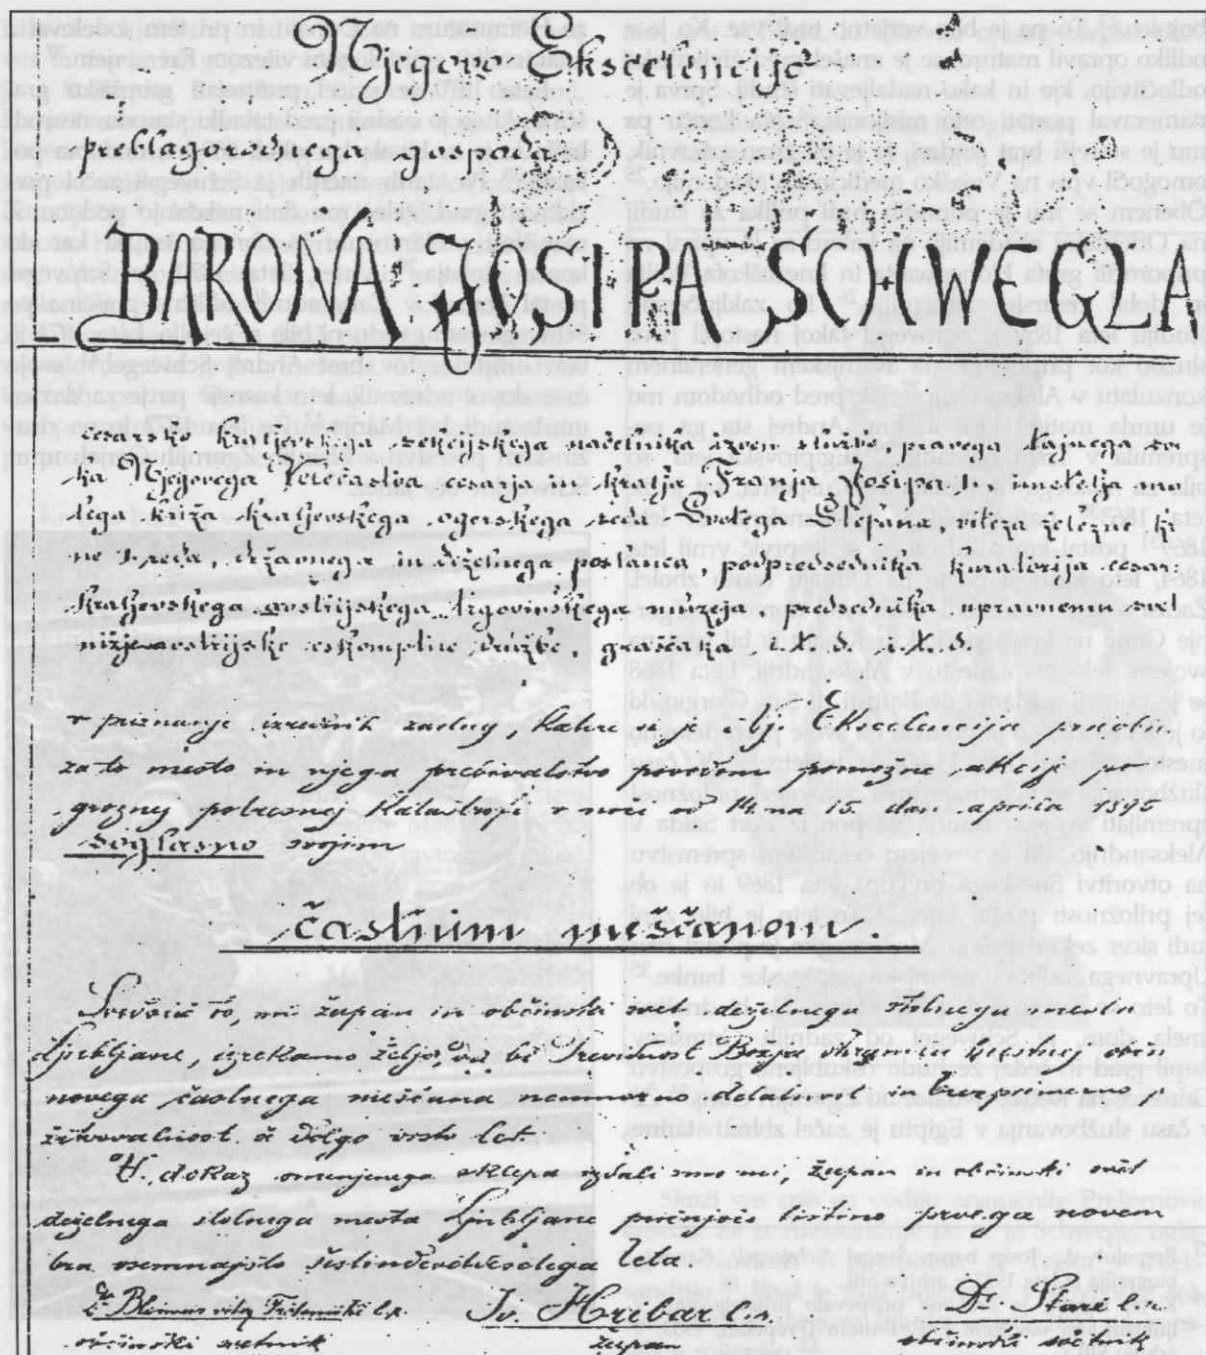 Njegovo Ekscelencijo
preblagorodnega gospoda
BARONA JOSIPA SCHWEGLA
cesarsko kraljevskega sekcijskega načelnika izven službe, pravega tajnega sve
ka Njegovega Veličastva cesarja in kralja Franja Josipa I., imetelja ma
lega križa kraljevskega ogerskega reda Svetega Štefana, viteza železne kr
ne I. reda, državnega in deželnega poslanca, podpredsednika kuratorija cesar:
kraljevskega avstrijskega trgovinskega muzeja, predsednika upravnemu svet
nižjeavstrijske eskomptne družbe, graščaka, i.t.d. i.t.d.
v priznanje izrednih zaslug, katere si je Ekscelencija
za to mesto in njega prebivalstvo povodom pomožne akcije po
groznej potresnej katastrofi v noči od 14. na 15. dan aprila 1895
soglasno svojim
častnim meščanom.
to, mi župan in občinski svet deželnega stolnega mesta
Ljubljane, izrekamo željo, da bi Previdnost Božja
novega častnega meščana neumorno delavnost in brezprimerno p
žrtvovalnost še dolgo vrsto let.
V dokaz omenjenega sklepa izdali smo mi, župan in občinski svet
deželnega stolnega mesta Ljubljane pričujočo listino prvega novem
bra osemnajsto šestindevetdesetega leta.
Dr. Bleiweis vitez Trsteniški l.r. Iv. Hribar l.r. Dr. Starè l.r.
občinski svetnik župan občinski svetnik